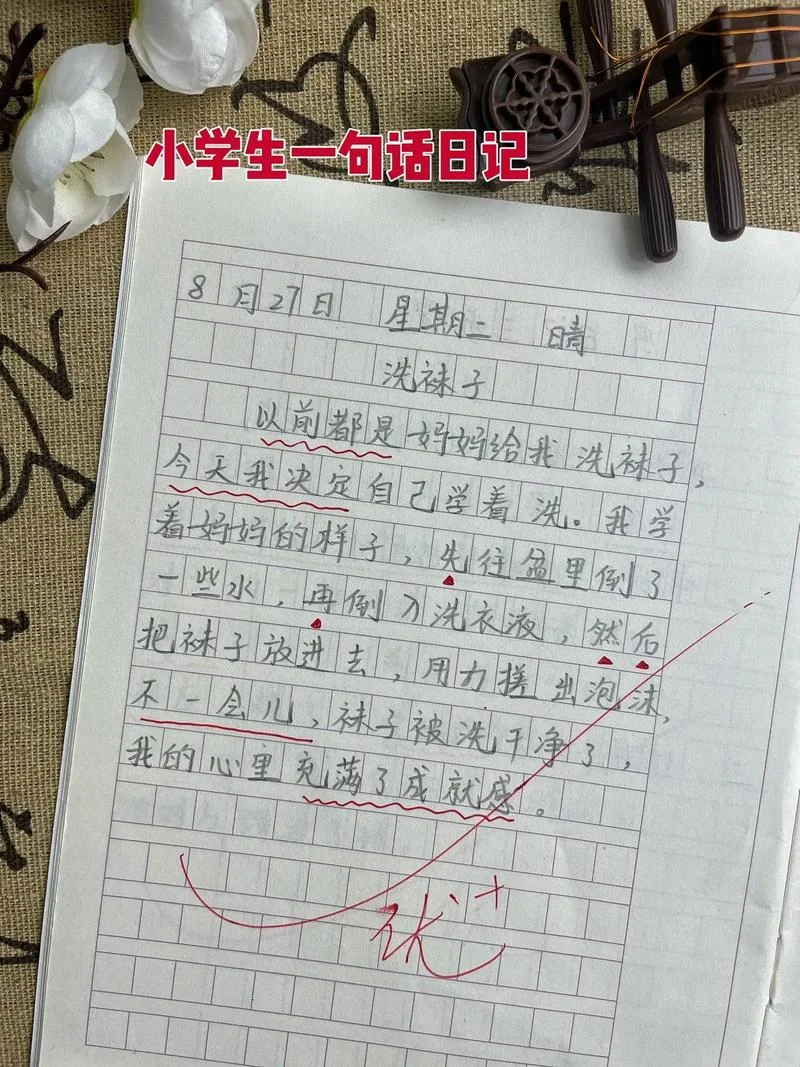 小学生一句话日记
8月27日 星期二 晴
洗袜子
以前都是妈妈给我洗袜子,
今天我决定自己学着洗。我学
着妈妈的样子,先往盆里倒了
一些水,再倒入洗衣液,然后
把袜子放进去,用力搓出泡沫,
不一会儿,袜子被洗干净了,
我的心里充满了成就感。
优+